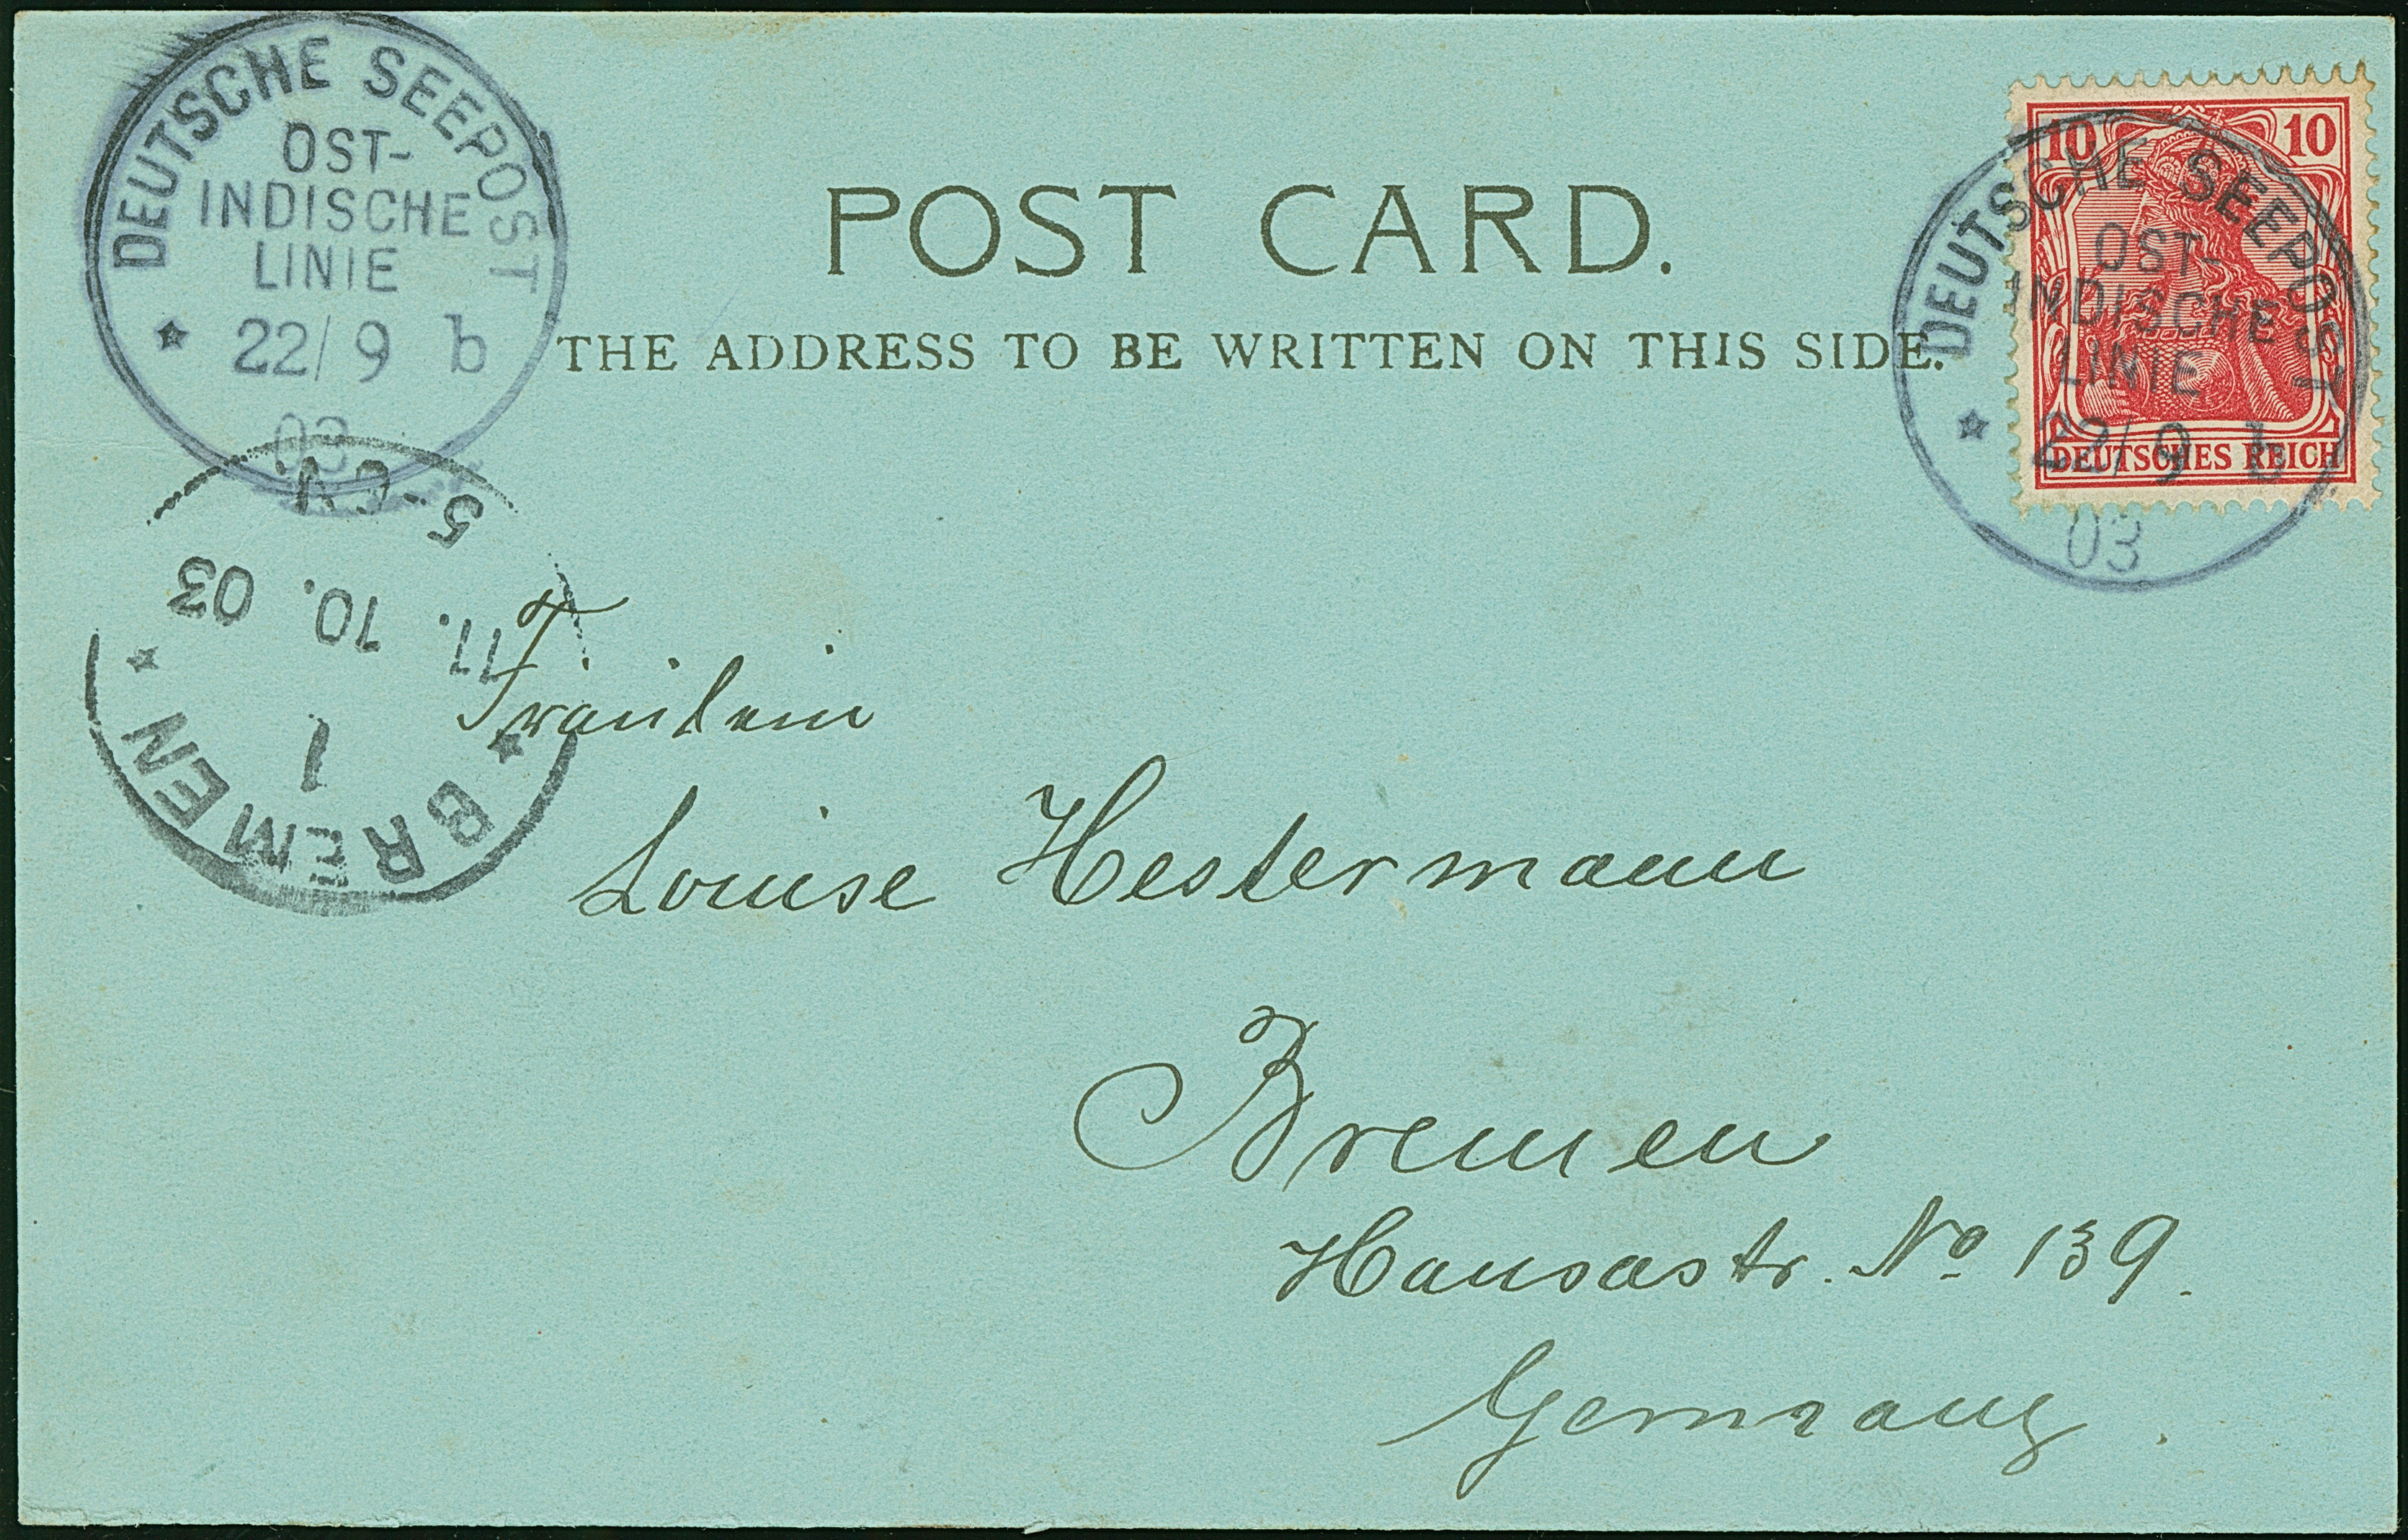 DEUTSCHE SEEPOST
OST-
INDISCHE
LINIE
22/9 b
03
POST CARD.
THE ADDRESS TO BE WRITTEN ON THIS SIDE.
10 10
DEUTSCHES REICH
DEUTSCHE SEEPOST
OST-
INDISCHE
LINIE
22/9 b
03
BREMEN
1
11. 10. 03
Fräulein
Louise Hestermann
Bremen
Hansastr. No 139.
Germany.